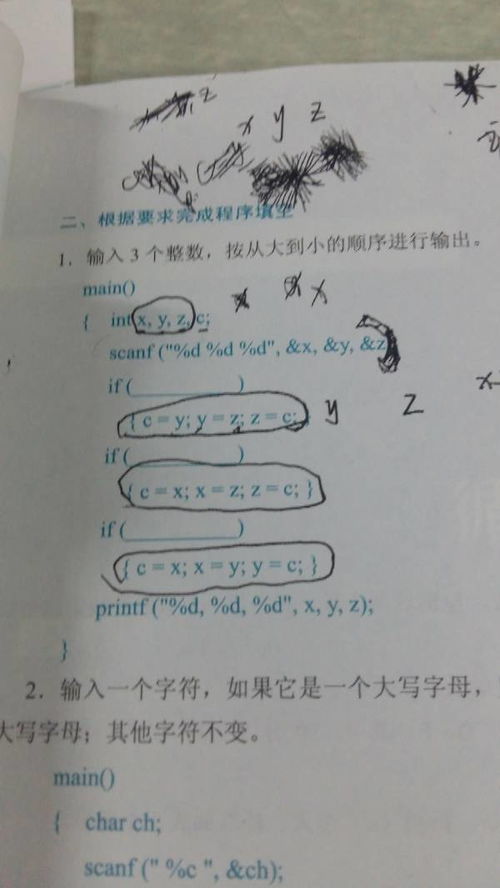 z
x y z
二、根据要求完成程序填空
1. 输入 3 个整数，按从大到小的顺序进行输出。
main()
x
{ int x, y, z, c;
scanf ("%d %d %d", &x, &y, &z
if (__________)
{ c = y; y = z; z = c; y z x
if (__________)
{ c = x; x = z; z = c; }
if (__________)
{ c = x; x = y; y = c; }
printf ("%d, %d, %d", x, y, z);
}
2. 输入一个字符，如果它是一个大写字母，
大写字母；其他字符不变。
main()
{ char ch;
scanf (" %c ", &ch);